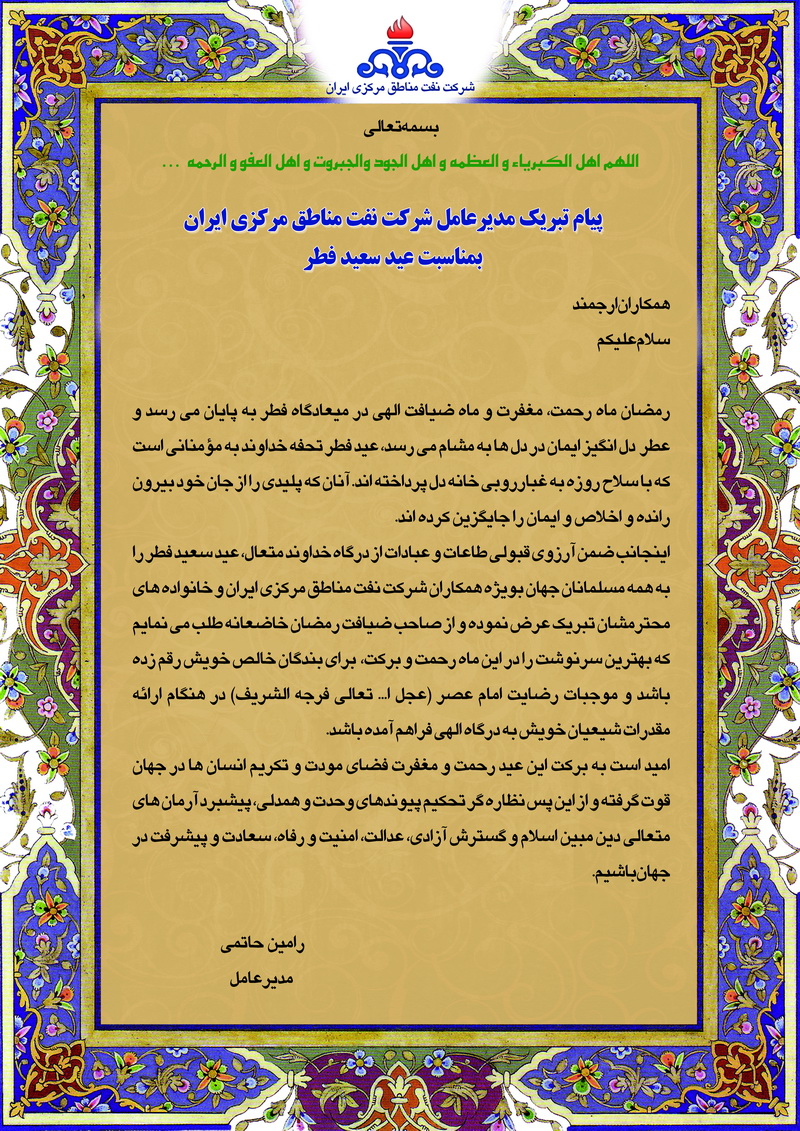 شرکت نفت مناطق مرکزی ایران
بسمه‌تعالی
اللهم اهل الکبریاء و العظمه و اهل الجود والجبروت و اهل العفو و الرحمه ...
پیام تبریک مدیرعامل شرکت نفت مناطق مرکزی ایران
بمناسبت عید سعید فطر
همکاران‌ارجمند
سلام‌علیکم
رمضان ماه رحمت، مغفرت و ماه ضیافت الهی در میعادگاه فطر به پایان می رسد و
عطر دل انگیز ایمان در دل ها به مشام می رسد، عید فطر تحفه خداوند به مؤمنانی است
که با سلاح روزه به غبارروبی خانه دل پرداخته اند. آنان که پلیدی را از جان خود بیرون
رانده و اخلاص و ایمان را جایگزین کرده اند.
اینجانب ضمن آرزوی قبولی طاعات و عبادات از درگاه خداوند متعال، عید سعید فطر را
به همه مسلمانان جهان بویژه همکاران شرکت نفت مناطق مرکزی ایران و خانواده های
محترمشان تبریک عرض نموده و از صاحب ضیافت رمضان خاضعانه طلب می نمایم
که بهترین سرنوشت را در این ماه رحمت و برکت، برای بندگان خالص خویش رقم زده
باشد و موجبات رضایت امام عصر (عجل ا... تعالی فرجه الشریف) در هنگام ارائه
مقدرات شیعیان خویش به درگاه الهی فراهم آمده باشد.
امید است به برکت این عید رحمت و مغفرت فضای مودت و تکریم انسان ها در جهان
قوت گرفته و از این پس نظاره گر تحکیم پیوندهای وحدت و همدلی، پیشبرد آرمان های
متعالی دین مبین اسلام و گسترش آزادی، عدالت، امنیت و رفاه، سعادت و پیشرفت در
جهان‌باشیم.
رامین حاتمی
مدیرعامل